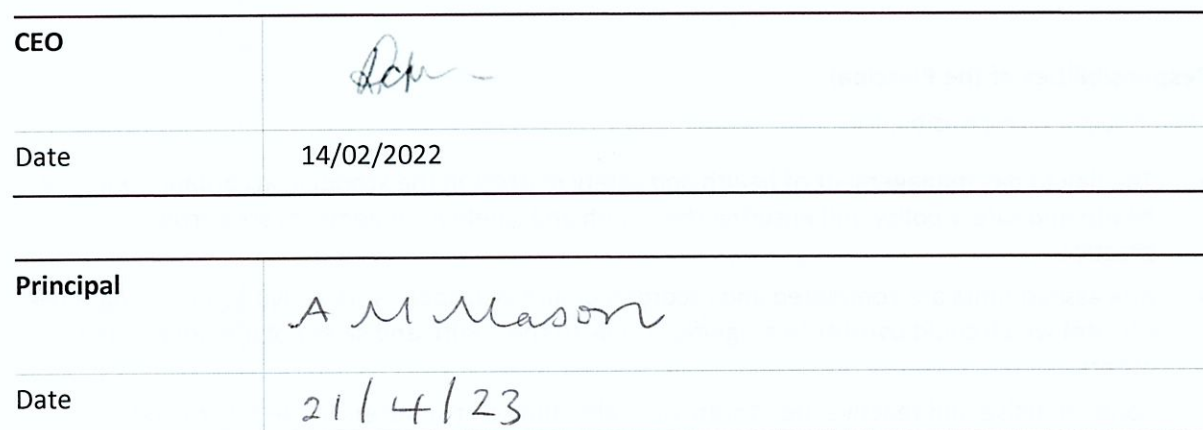 CEO
Date 14/02/2022
Principal A M Mason
Date 21/4/23